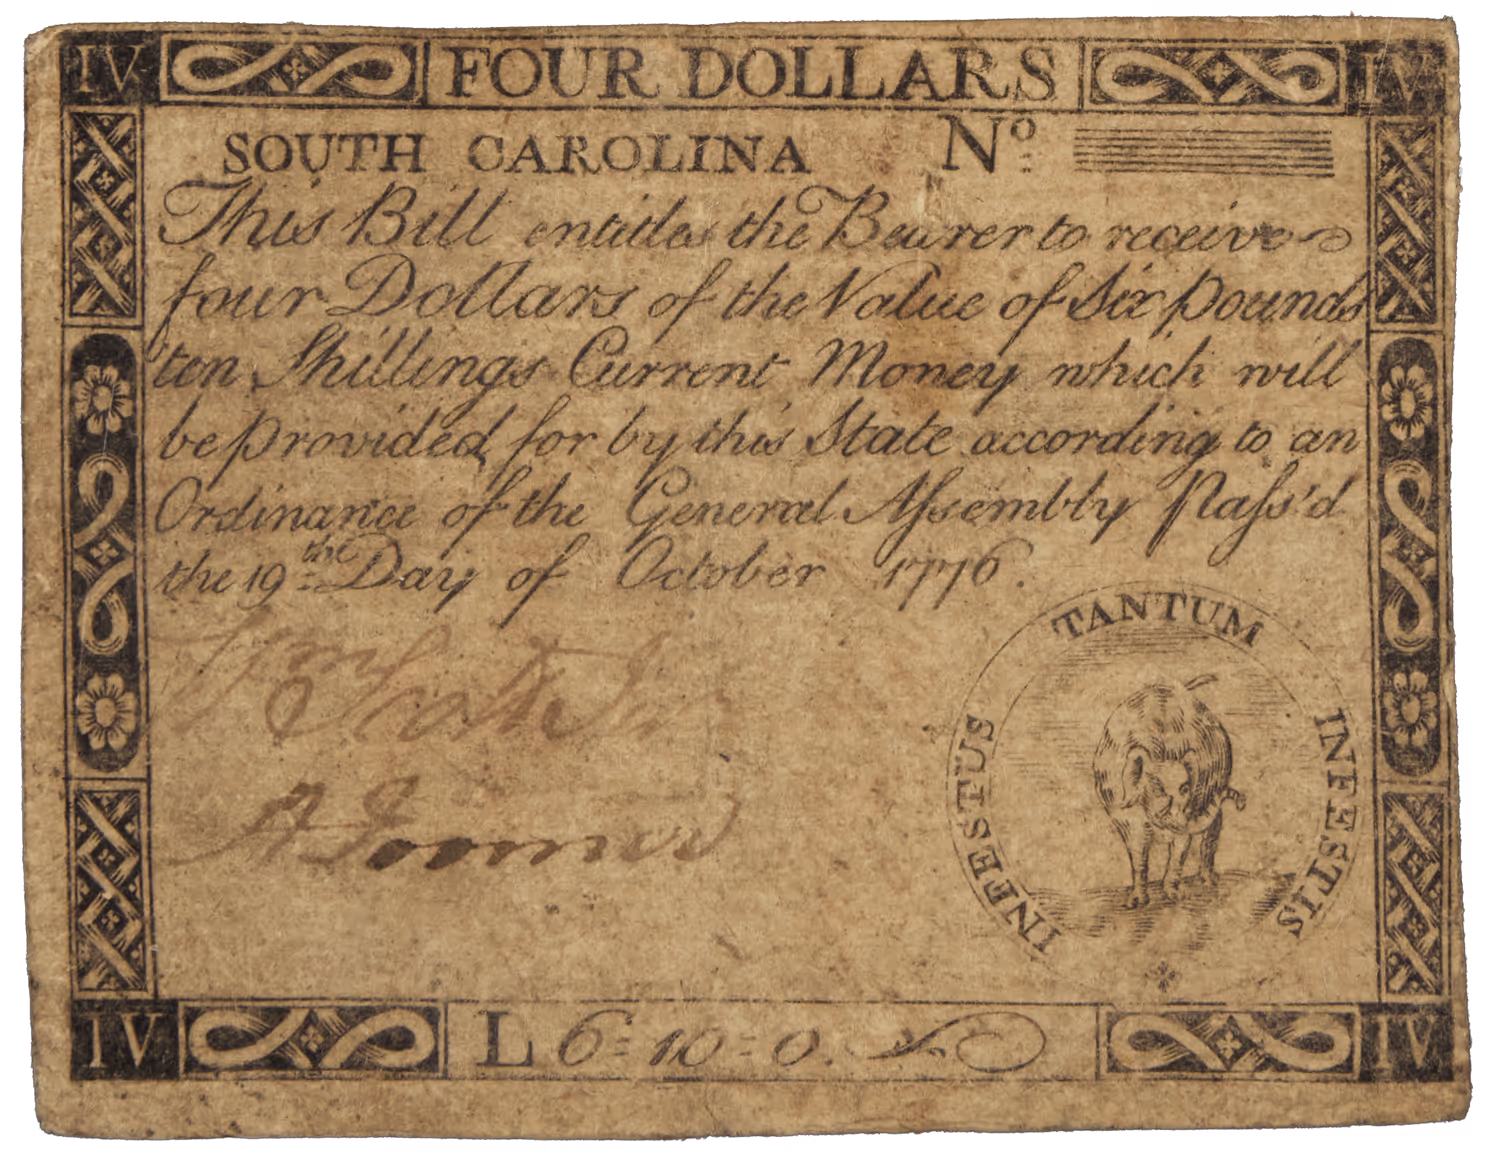 IV FOUR DOLLARS IV
SOUTH CAROLINA Nº
This Bill entitles the Bearer to receive
four Dollars of the Value of Six pounds
ten Shillings Current Money which will
be provided for by this State according to an
Ordinance of the General Aſsembly Paſs'd
the 19.the Day of October 1776.
TANTUM
INFESTUS INFESTIS
IV L 6=10=0. IV